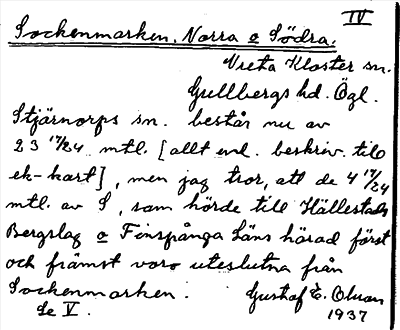 IV
Sockenmarken, Norra o Södra.
Vreta Kloster sn.
Gullbergs hd. Ögl.
Stjärnorps sn. består nu av
23 17/24 mtl. [allt enl. beskriv. till
ek-kart], men jag tror, att de 4 17/24
mtl. av S, som hörde till Hällestads
Bergslag o Finspånga Läns härad först
och främst voro uteslutna från
Sockenmarken. Gustaf E. Olsson
Se V. 1937